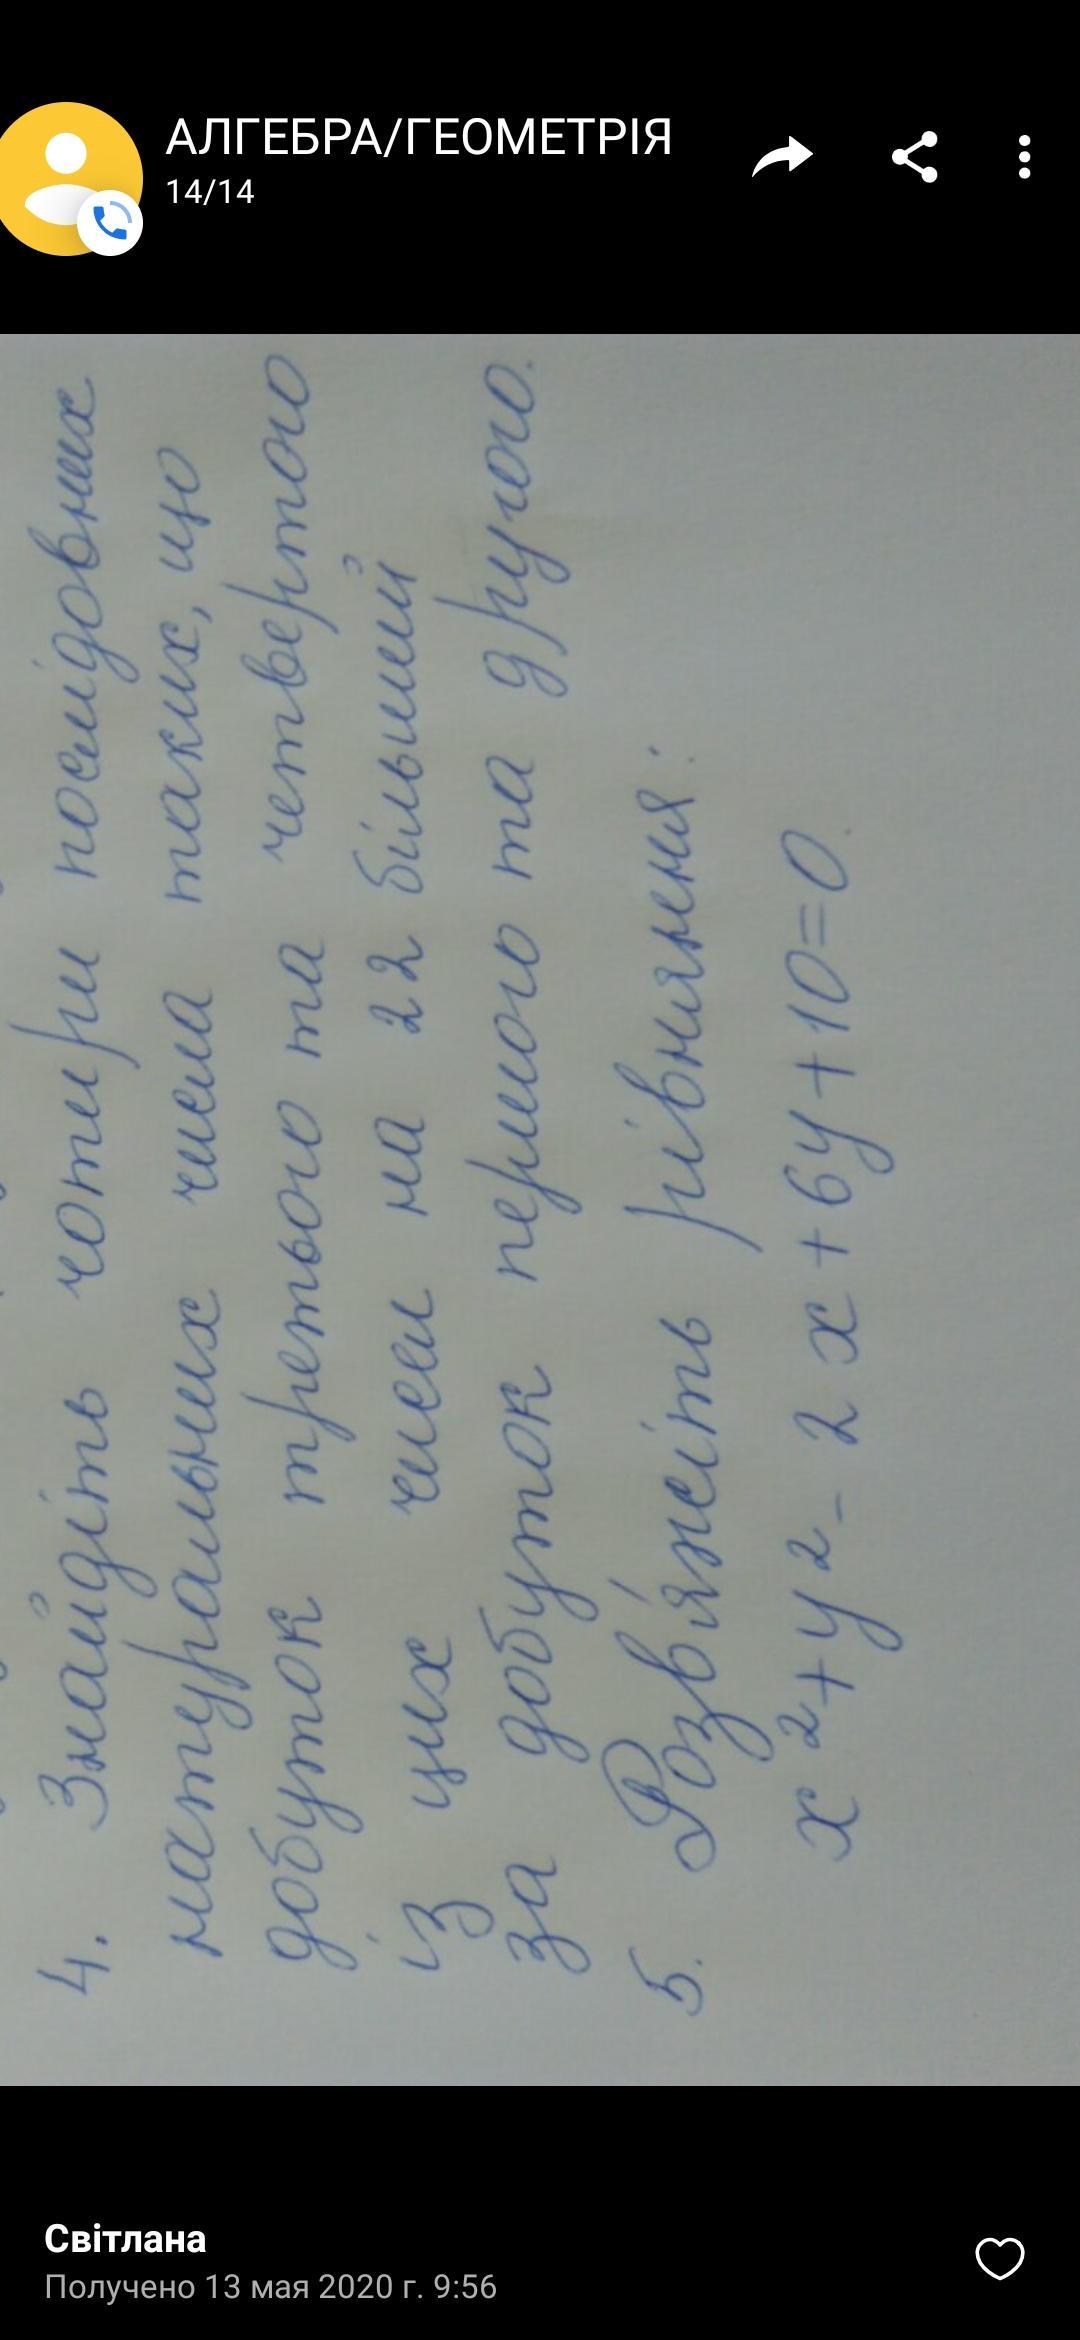 АЛГЕБРА/ГЕОМЕТРІЯ
14/14
4. Знайдіть чотири послідовних
натуральних числа таких, що
добуток третього та четвертого
із цих чисел на 22 більший
за добуток першого та другого.
5. Розв'яжіть рівняння:
x²+y²-2x+6y+10=0.
Світлана
Получено 13 мая 2020 г. 9:56